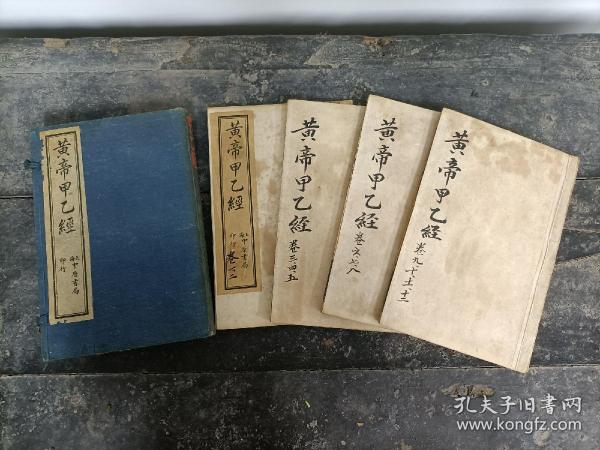 黄帝甲乙經
印行
黄帝甲乙經
印行
卷一二
黄帝甲乙经
卷三四五
黄帝甲乙经
卷六七八
黄帝甲乙经
卷九十十一十二
孔夫子旧书网
www.kongfz.com